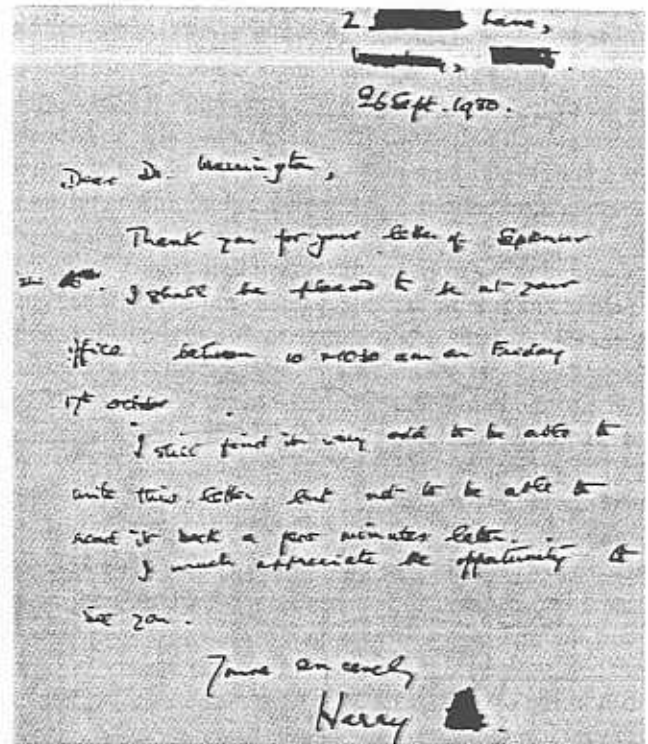 2 Lane,
26 Sept. 1980.
Dear Dr. Warrington,
Thank you for your letter of September
I shall be pleased to be at your
office between 10 - 10.30 am on Friday
17th October
I still find it very odd to be able to
write this letter but not to be able to
read it back a few minutes later.
I much appreciate the opportunity to
see you.
Yours sincerely
Harry